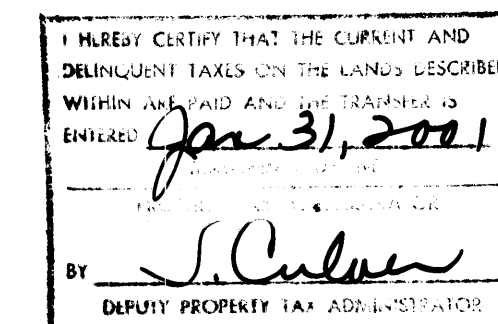 I HEREBY CERTIFY THAT THE CURRENT AND
DELINQUENT TAXES ON THE LANDS DESCRIBE
WITHIN ARE PAID AND THE TRANSFER IS
ENTERED Jan 31, 2001
BY J. Culver
DEPUTY PROPERTY TAX ADMINISTRATOR